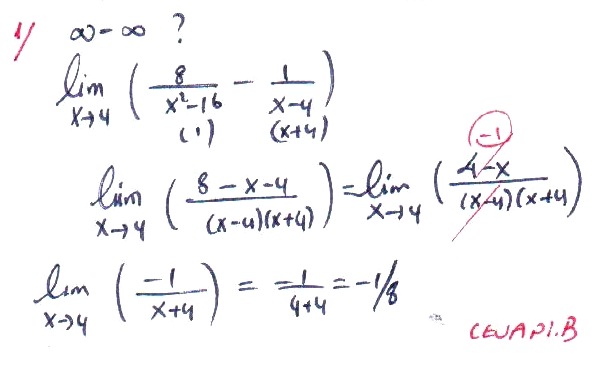 1/ ∞-∞ ?
lim x→4 ( 8/(x²-16) - 1/(x-4) )
(1) (x+4)
lim x→4 ( (8-x-4)/((x-4)(x+4)) ) = lim x→4 ( (4-x)/((x-4)(x+4)) ) (-1)
lim x→4 ( -1/(x+4) ) = -1/(4+4) = -1/8
CEVAP1.B